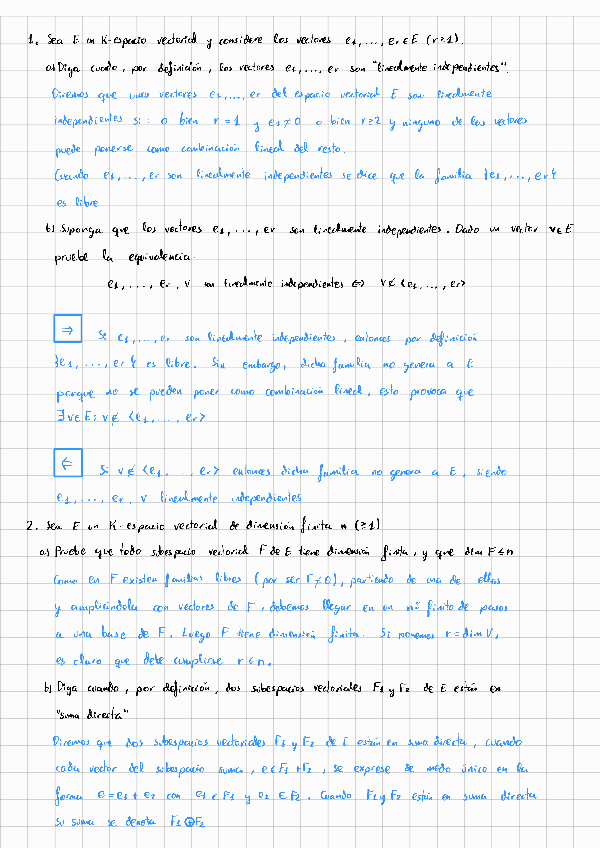 1. Sea E un K-espacio vectorial y considere los vectores e1,...,er ∈ E (r≥1).
a) Diga cuando, por definición, los vectores e1,...,er son "linealmente independientes".
Diremos que unos vectores e1,...,er del espacio vectorial E son linealmente
independientes si: o bien r=1 y e1≠0 o bien r≥2 y ninguno de los vectores
puede ponerse como combinación lineal del resto.
Cuando e1,...,er son linealmente independientes se dice que la familia {e1,...,er}
es libre
b) Suponga que los vectores e1,...,er son linealmente independientes. Dado un vector v∈E
pruebe la equivalencia:
e1,...,er,v son linealmente independientes ⇔ v∉<e1,...,er>
⇒ Si e1,...,er son linealmente independientes, entonces por definición
{e1,...,er} es libre. Sin embargo, dicha familia no genera a E
porque no se pueden poner como combinación lineal, esto provoca que
∃v∈E: v∉<e1,...,er>
⇐ Si v∉<e1,...,er> entonces dicha familia no genera a E, siendo
e1,...,er,v linealmente independientes
2. Sea E un K-espacio vectorial de dimensión finita n (≥1)
a) Pruebe que todo subespacio vectorial F de E tiene dimensión finita, y que dim F≤n
Como en F existen familias libres (por ser F≠0), partiendo de una de ellas
y ampliándola con vectores de F, debemos llegar en un nº finito de pasos
a una base de F. Luego F tiene dimensión finita. Si ponemos r=dim V,
es claro que debe cumplirse r≤n.
b) Diga cuando, por definición, dos subespacios vectoriales F1 y F2 de E están en
"suma directa"
Diremos que dos subespacios vectoriales F1 y F2 de E están en suma directa, cuando
cada vector del subespacio suma, e∈F1+F2, se exprese de modo único en la
forma e=e1+e2 con e1∈F1 y e2∈F2. Cuando F1 y F2 están en suma directa
su suma se denota F1⊕F2